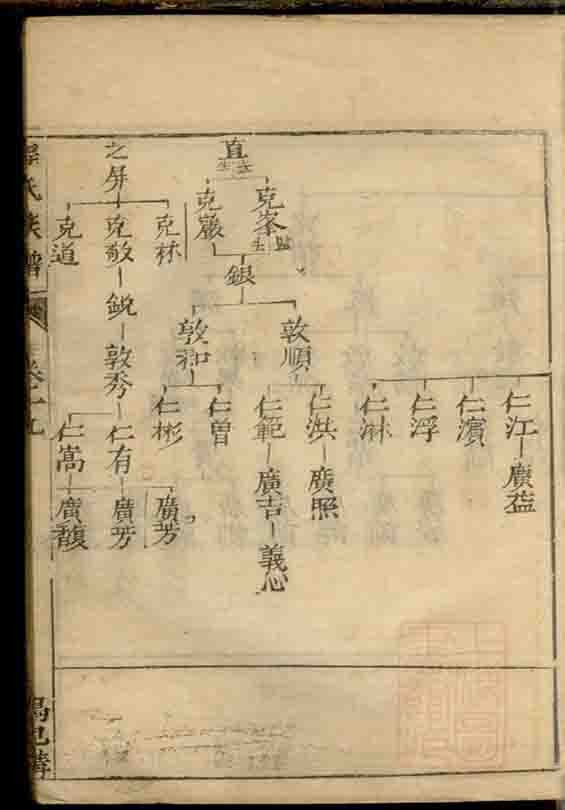 仁江 廣益
仁濱
仁浮
仁淋
直
克峯 克巖
銀
敦順 敦和
仁洪 廣照
仁範 廣吉 義心
仁曾
仁彬
之屏
克林 克敬 克道
銳
敦秀
仁有 仁嵩
廣芳 廣芳 廣馥
氏族譜
卷十九